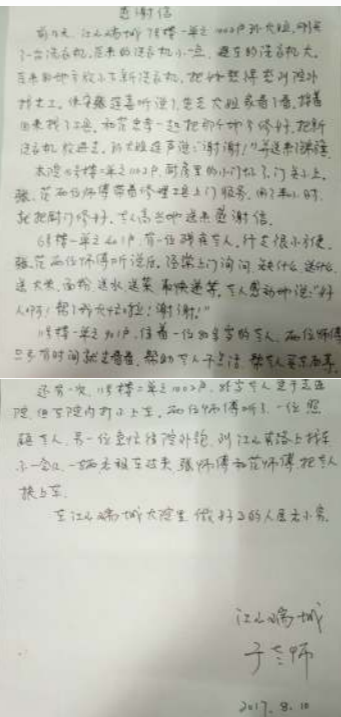 感谢信
前几天，江山瑞城18楼一单元1002户孙大姐，刚买
了一台洗衣机，原来的洗衣机小一点，现在的洗衣机大，
原来的地方放不下新洗衣机，把她愁得想到院外
找木工。保安张莲喜听说了，先去大姐家看了看，接着
回来找了工具，和范忠孝一起把那个地方修好，把新
洗衣机放进去，孙大姐连声说“谢谢！”
本院 楼二单元1002户，厨房里的小门坏了，门关不上，
张、范两位师傅带着修理工具上门服务，用了 小时，
就把厨门修好，主人高兴地送来感谢信。
6号楼一单元 户，有一位残疾老人，行走很不方便，
张、范两位师傅听说后，经常上门询问，缺什么，送什么，
送大米、面粉、送水、送菜、取快递等，老人感动地说：“好
人啊！帮了我大忙啦！谢谢！”
11号楼一单元901户，住着一位80多岁的老人，两位师傅
只要有时间就去看看，帮助老人干点活，帮老人买东西等。
还有一次，11号楼二单元1002户，
院，但车院内打不上车，两位师傅听了，一位照
顾老人，另一位急忙往院外跑，到江山南路上找车
不一会儿，一辆出租车过来，张师傅和范师傅，把老人
扶上车。
在江山瑞城大院里，做好事的人层出不穷。
江山瑞城
于老师
2017.8.10